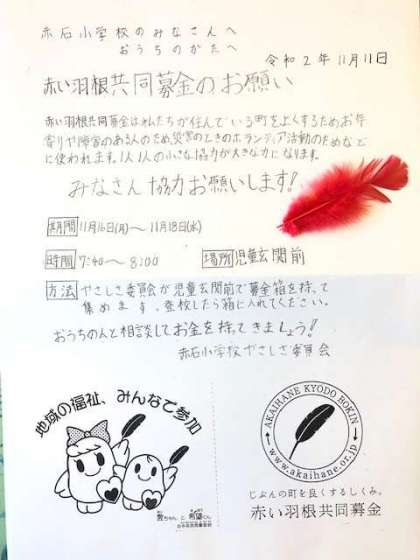 赤石小学校のみなさんへ
おうちのかたへ
令和2年11月11日
赤い羽根共同募金のお願い
赤い羽根共同募金は私たちが住んでいる町をよくするためお年
寄りや障害のある人のため、災害のときのボランティア活動のためなど
に使われます。1人1人の小さな協力が大きな力になります。
みなさん協力お願いします!
期間 11月16日(月)〜11月18日(水)
時間 7:40〜8:00 場所 児童玄関前
方法 やさしさ委員会が児童玄関前で募金箱を持って
集めます。登校したら箱に入れてください。
おうちの人と相談してお金を持ってきましょう!!
赤石小学校やさしさ委員会
地域の福祉、みんなで参加
愛ちゃんと希望くん
AKAIHANE KYODO BOKIN
www.akaihane.or.jp
じぶんの町を良くするしくみ。
赤い羽根共同募金